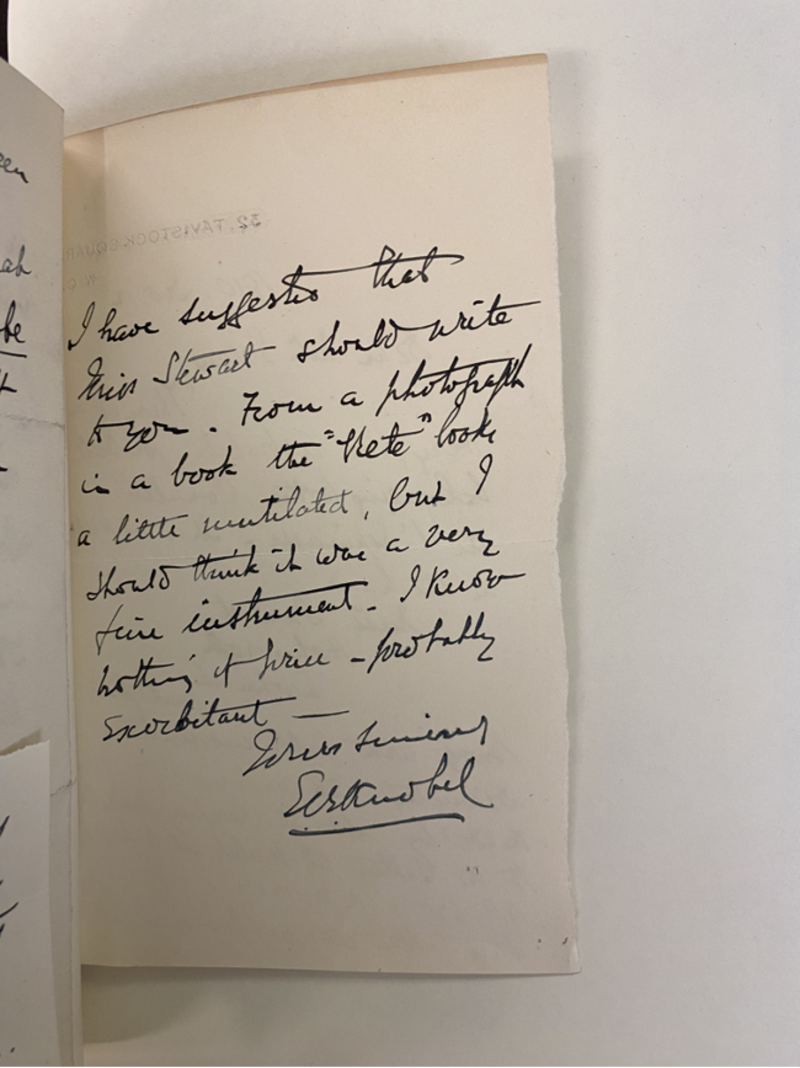 een
ah
be
32, TAVISTOCK SQUAR
W.C.
I have suggested that
Miss Stewart should write
to you. From a photograph
in a book the "Rete" looks
a little mutilated, but I
should think it was a very
fine instrument. I know
nothing of price - probably
exorbitant —
Yours sincerely
E B Knobel